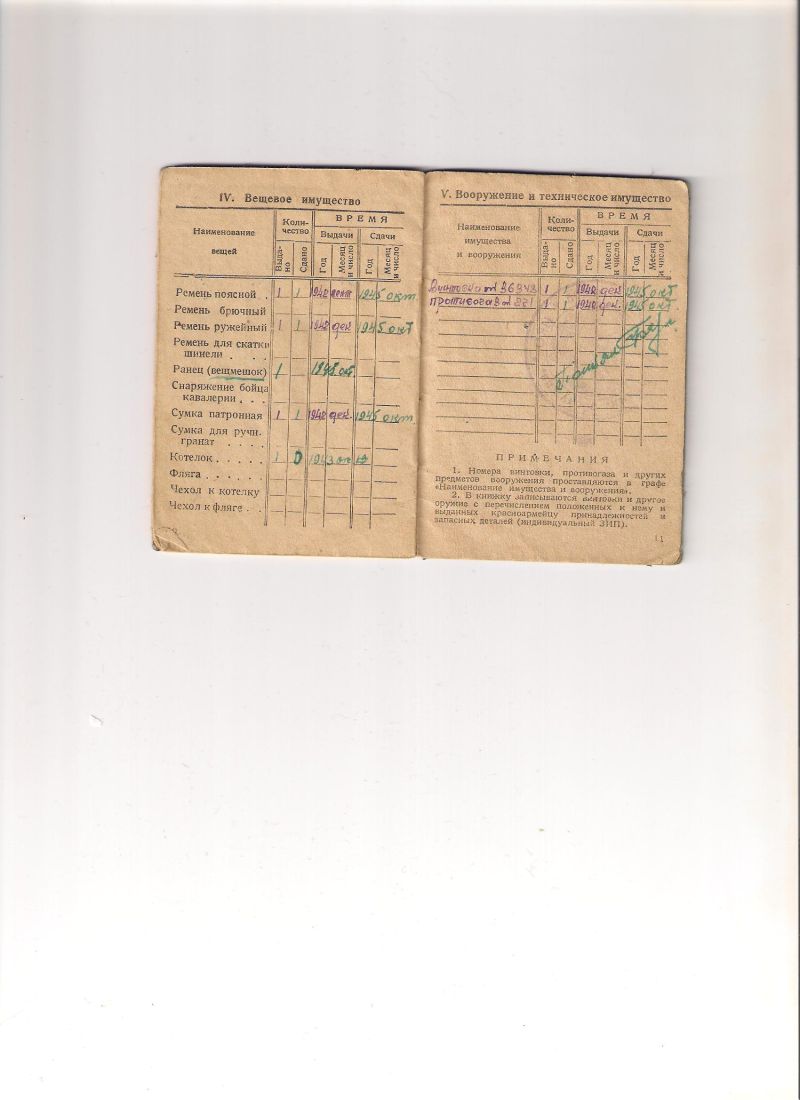 IV. Вещевое имущество
Наименование вещей
Количество
ВРЕМЯ
Выдачи
Сдачи
Выдано
Сдано
Год
Месяц и число
Год
Месяц и число
Ремень поясной . 1 1 1945 окт.
Ремень брючный
Ремень ружейный 1 1 дек 1945 окт
Ремень для скатки
шинели . . . .
Ранец (вещмешок) 1
Снаряжение бойца
кавалерии . . .
Сумка патронная 1 1 дек 1945 окт.
Сумка для ручн.
гранат . . . .
Котелок . . . . . 1 1943
Фляга . . . . . .
Чехол к котелку
Чехол к фляге . .
V. Вооружение и техническое имущество
Наименование
имущества
и вооружения
Количество
ВРЕМЯ
Выдачи
Сдачи
Выдано
Сдано
Год
Месяц и число
Год
Месяц и число
Винтовка 1 1 дек 1945 окт
Противогаз 1 1 дек. 1945 окт
ПРИМЕЧАНИЯ
1. Номера винтовки, противогаза и других
предметов вооружения проставляются в графе
«Наименование имущества и вооружения».
2. В книжку записываются винтовки и другое
оружие с перечислением положенных к нему и
выданных красноармейцу принадлежностей и
запасных деталей (индивидуальный ЗИП).
11